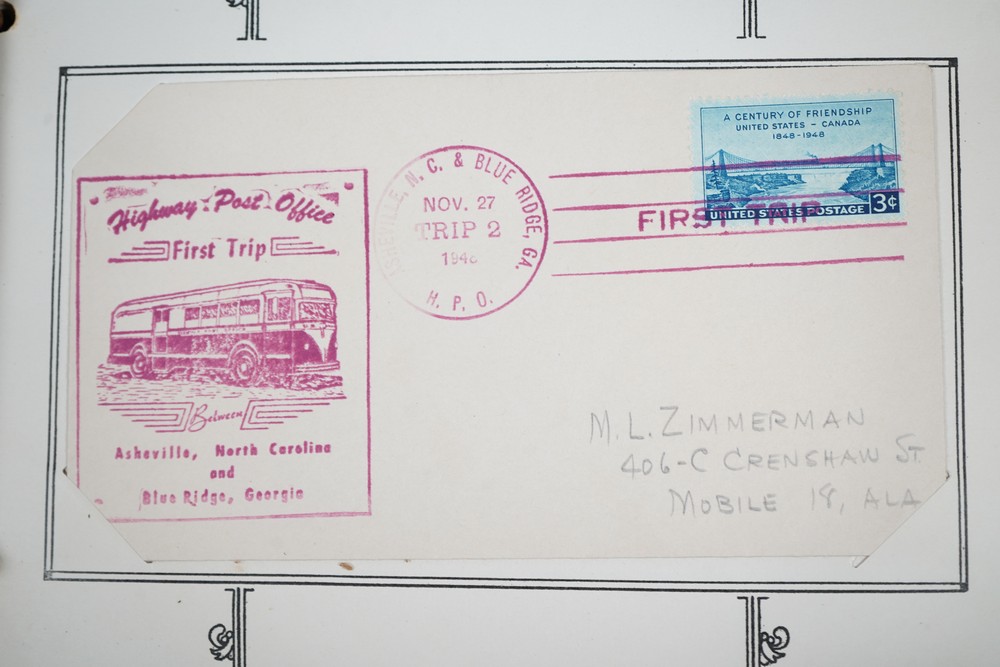 Highway Post Office
First Trip
Between
Asheville, North Carolina
and
Blue Ridge, Georgia
ASHEVILLE, N. C. & BLUE RIDGE, GA.
NOV. 27
TRIP 2
H. P. O.
FIRST TRIP
A CENTURY OF FRIENDSHIP
UNITED STATES – CANADA
1848-1948
UNITED STATES POSTAGE 3¢
M. L. ZIMMERMAN
406-C CRENSHAW ST
MOBILE 18, ALA